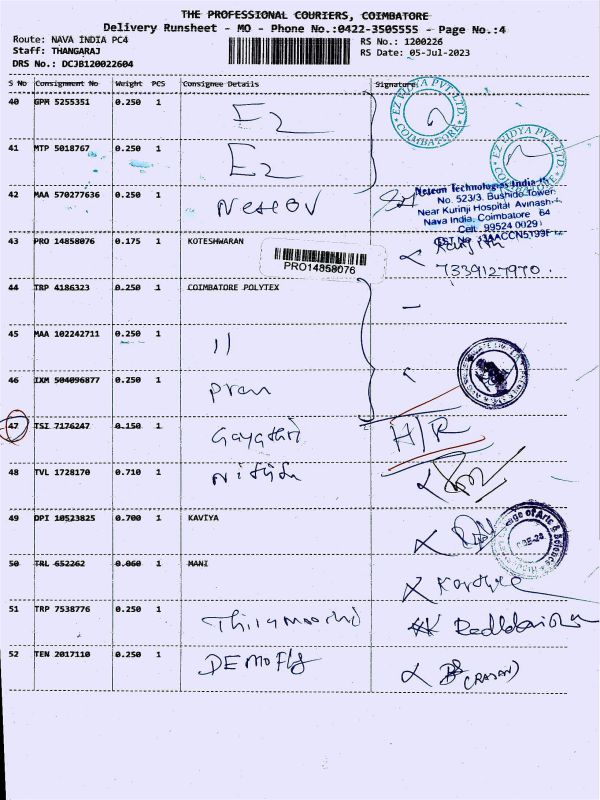 THE PROFESSIONAL COURIERS, COIMBATORE
Delivery Runsheet - MO - Phone No.:0422-3505555 - Page No.:4
Route: NAVA INDIA PC4 RS No.: 1200226
Staff: THANGARAJ RS Date: 05-Jul-2023
DRS No.: DCJB120022604
S No Consignment No Weight PCS Consignee Details Signature
40 GPM 5255351 0.250 1 EZ
EZ VIDYA PVT. LTD. COIMBATORE
41 MTP 5018767 0.250 1 EZ
EZ VIDYA PVT. LTD. COIMBATORE
42 MAA 570277636 0.250 1
Netcon Technologies India
No. 523/3, Bushido Tower
Near Kurinji Hospital Avinash
Nava India, Coimbatore 64
Cell: 99524 00291
43 PRO 14858076 0.175 1 KOTESHWARAN
PRO14858076
7339127970
44 TRP 4186323 0.250 1 COIMBATORE POLYTEX
45 MAA 102242711 0.250 1 11
46 IXM 504096877 0.250 1
47 TSI 7176247 0.150 1 Gayathri H/R
48 TVL 1728170 0.710 1
49 DPI 10523825 0.700 1 KAVIYA
of Arts & Science
50 TRL 652262 0.060 1 MANI
51 TRP 7538776 0.250 1
52 TEN 2017110 0.250 1 DEMOFLY (RAJAN)